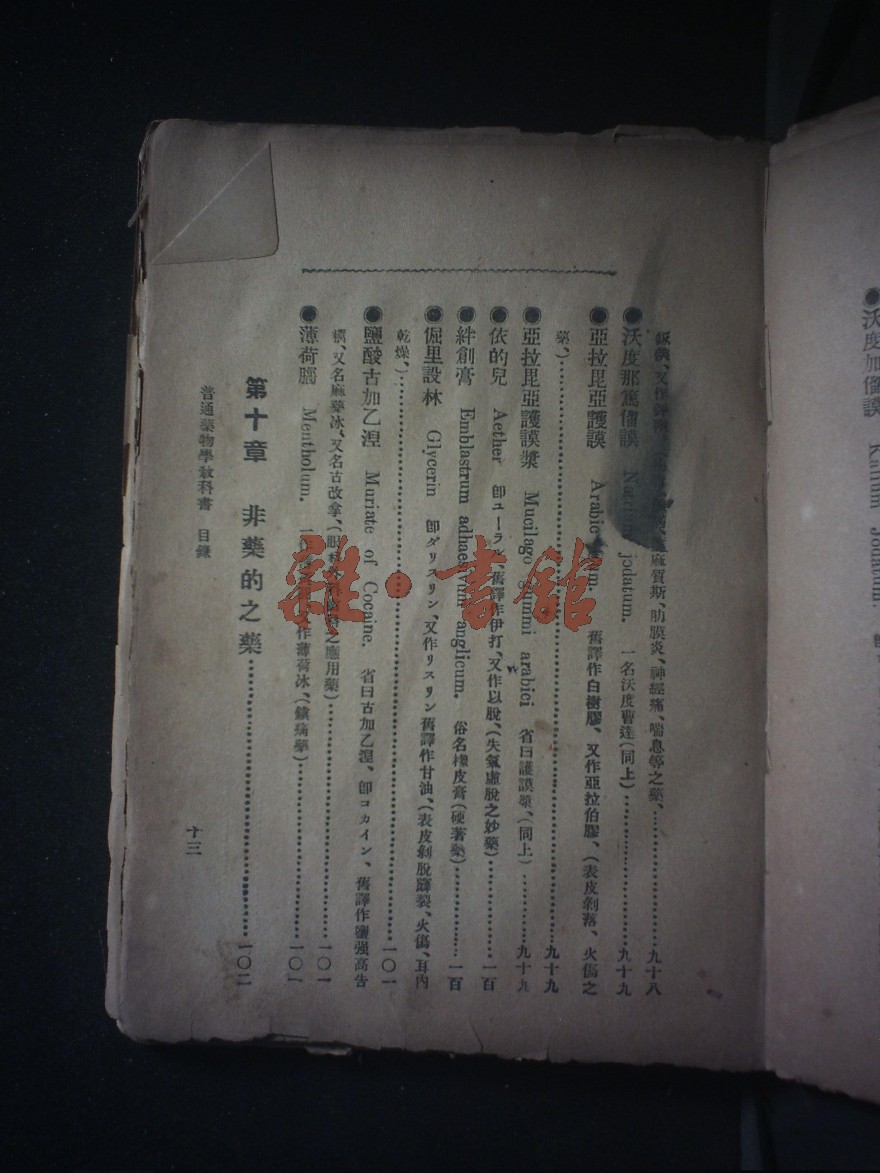 麻質斯、肋膜炎、神經痛、喘息等之藥、………九十八
●沃度那篤僧謨 jodatum. 一名沃度曹達(同上)………九十九
●亞拉毘亞護謨 Arabic 舊譯作白樹膠、又作亞拉伯膠、(表皮剝落、火傷之
藥、)………九十九
●亞拉毘亞護謨漿 Mucilago gummi arabici 省曰護謨漿、(同上)………九十九
●依的兒 Aether 卽ユーラル、舊譯作伊打、又作以脫、(失氣虛脫之妙藥)………一百
●絆創膏 Emblastrum adhaesivum anglicum. 俗名橡皮膏(硬著藥)………一百
●倔里設林 Glycerin 卽ダリスリン、又作リスリン舊譯作甘油、(表皮剝脫皹裂、火傷、耳內
乾燥、)………一〇一
●鹽酸古加乙涅 Muriate of Cocaine. 省曰古加乙涅、卽コカイン、舊譯作鹽強高告
又名麻藥冰、又名古改拿、之應用藥)………一〇一
●薄荷腦 Mentholum. 作薄荷冰、(鎮痛藥)………一〇一
第十章 非藥的之藥………一〇二
普通藥物學敎科書 目錄
十三
雜·書館
●沃度加僧謨 Kalium Jodatum.